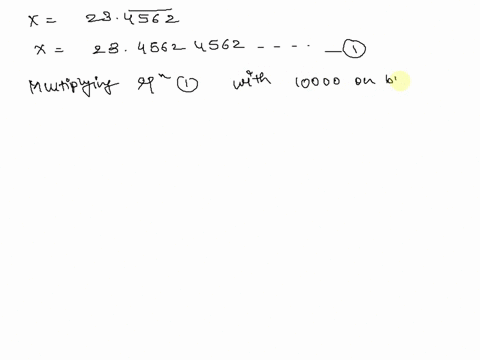 x = 23.4562̅
x = 23.4562 4562 ----- — ①
Multiplying eqⁿ ① with 10000 on b